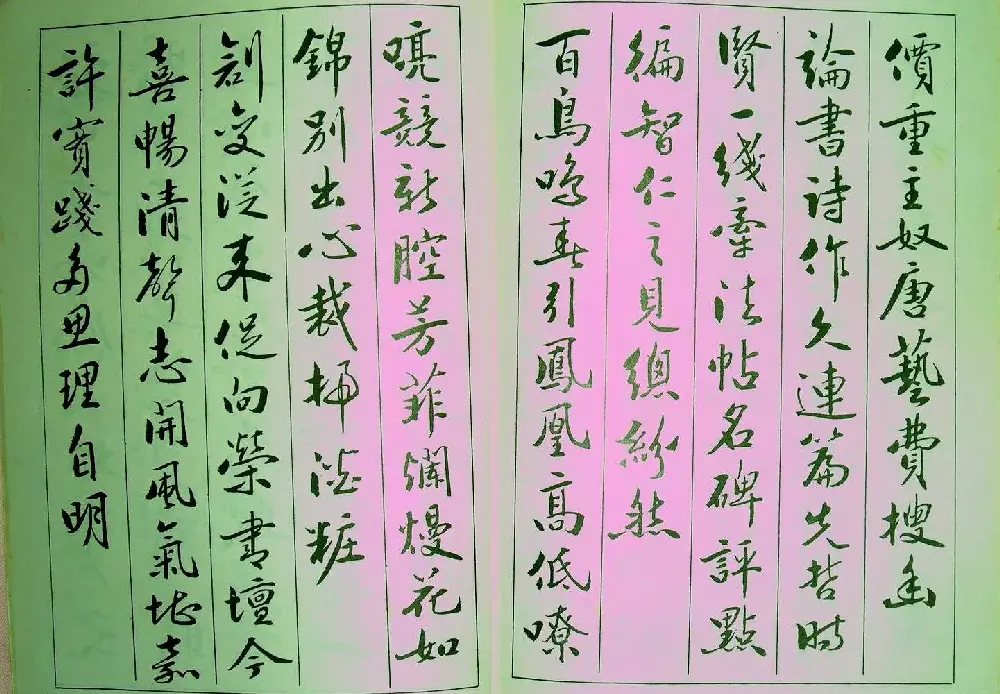 價重主奴唐藝費搜幽
論書詩作久連篇先哲時
賢一綫牽法帖名碑評點
編智仁之見總紛然
百鳥鳴春引鳳凰高低嘹
喨競新腔芳菲爛熳花如
錦別出心裁掃粧
創變從來促向榮書壇今
喜暢清聲志開風氣堪嘉
許實踐多思理自明